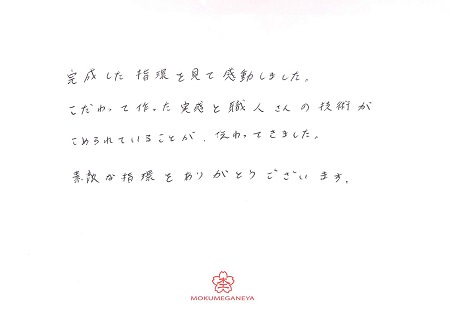 完成した指環を見て感動しました。
こだわって作った実感と職人さんの技術が
こめられていることが、伝わってきました。
素敵な指環をありがとうございます。
MOKUMEGANEYA